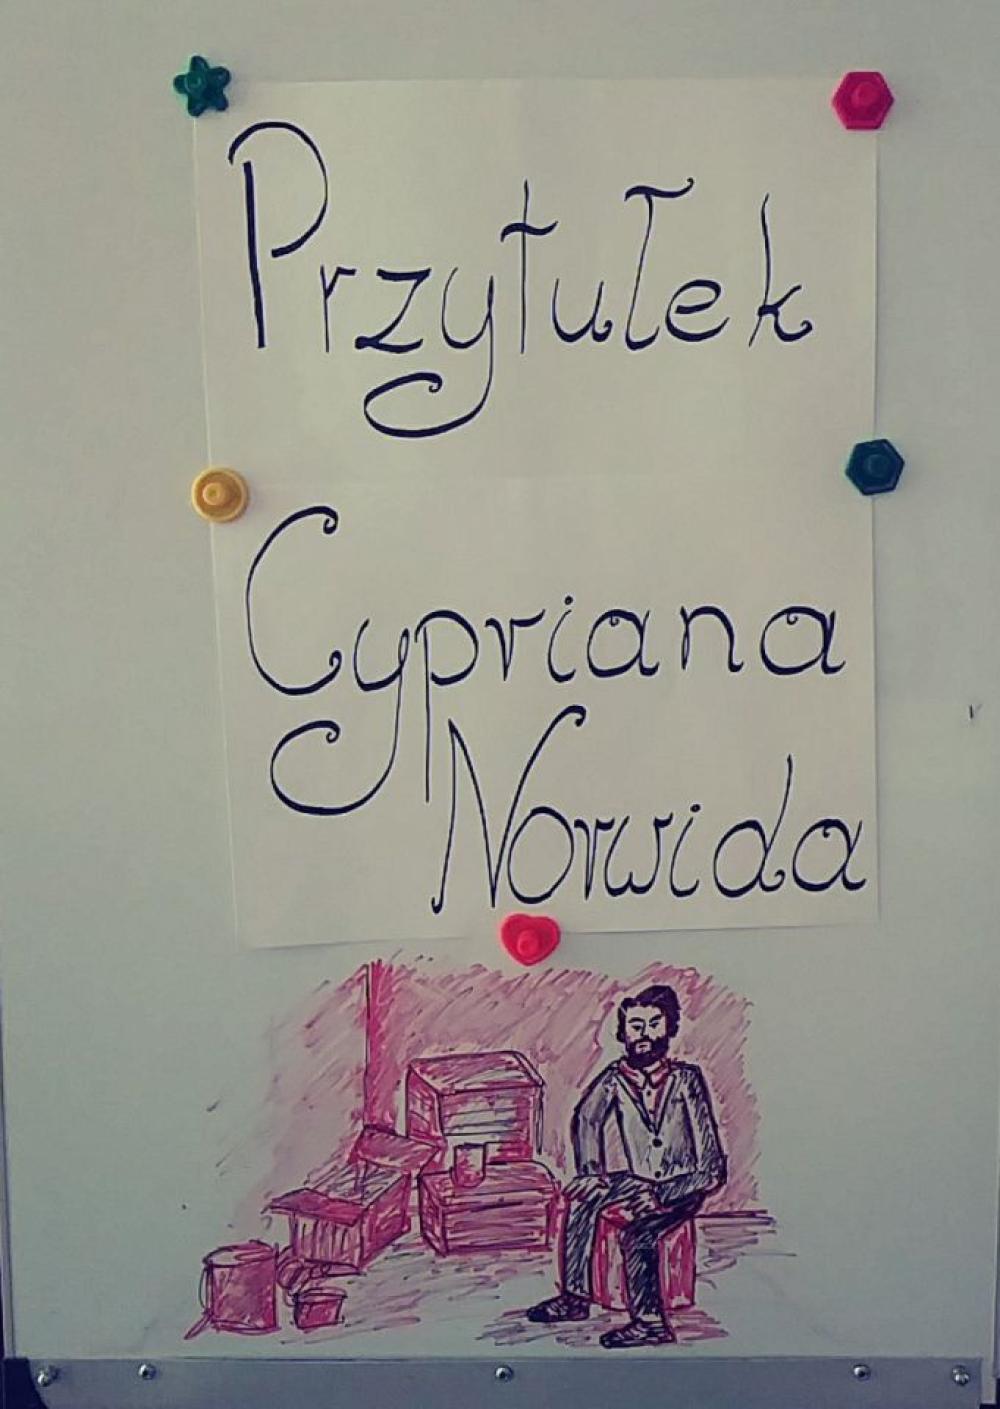 Przytułek
Cypriana
Norwida